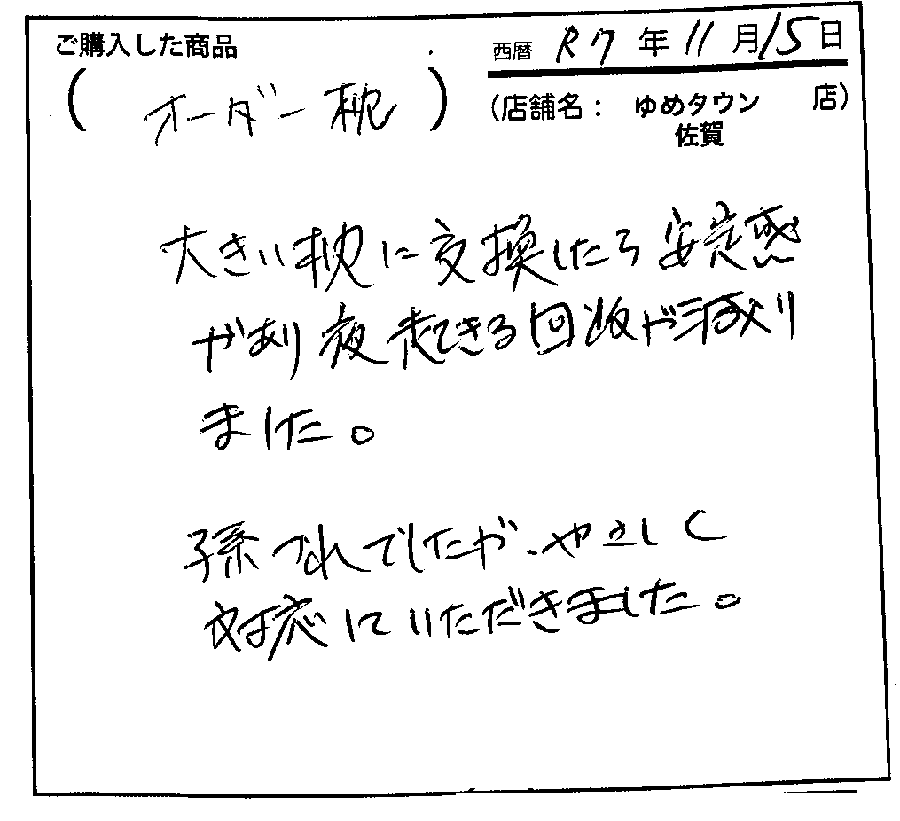 ご購入した商品
西暦 R7年11月15日
(オーダー枕)
(店舗名： ゆめタウン 店)
佐賀
大きい枕に交換したら安定感
があり夜起きる回数が減り
ました。
孫づれでしたが、やさしく
対応していただきました。